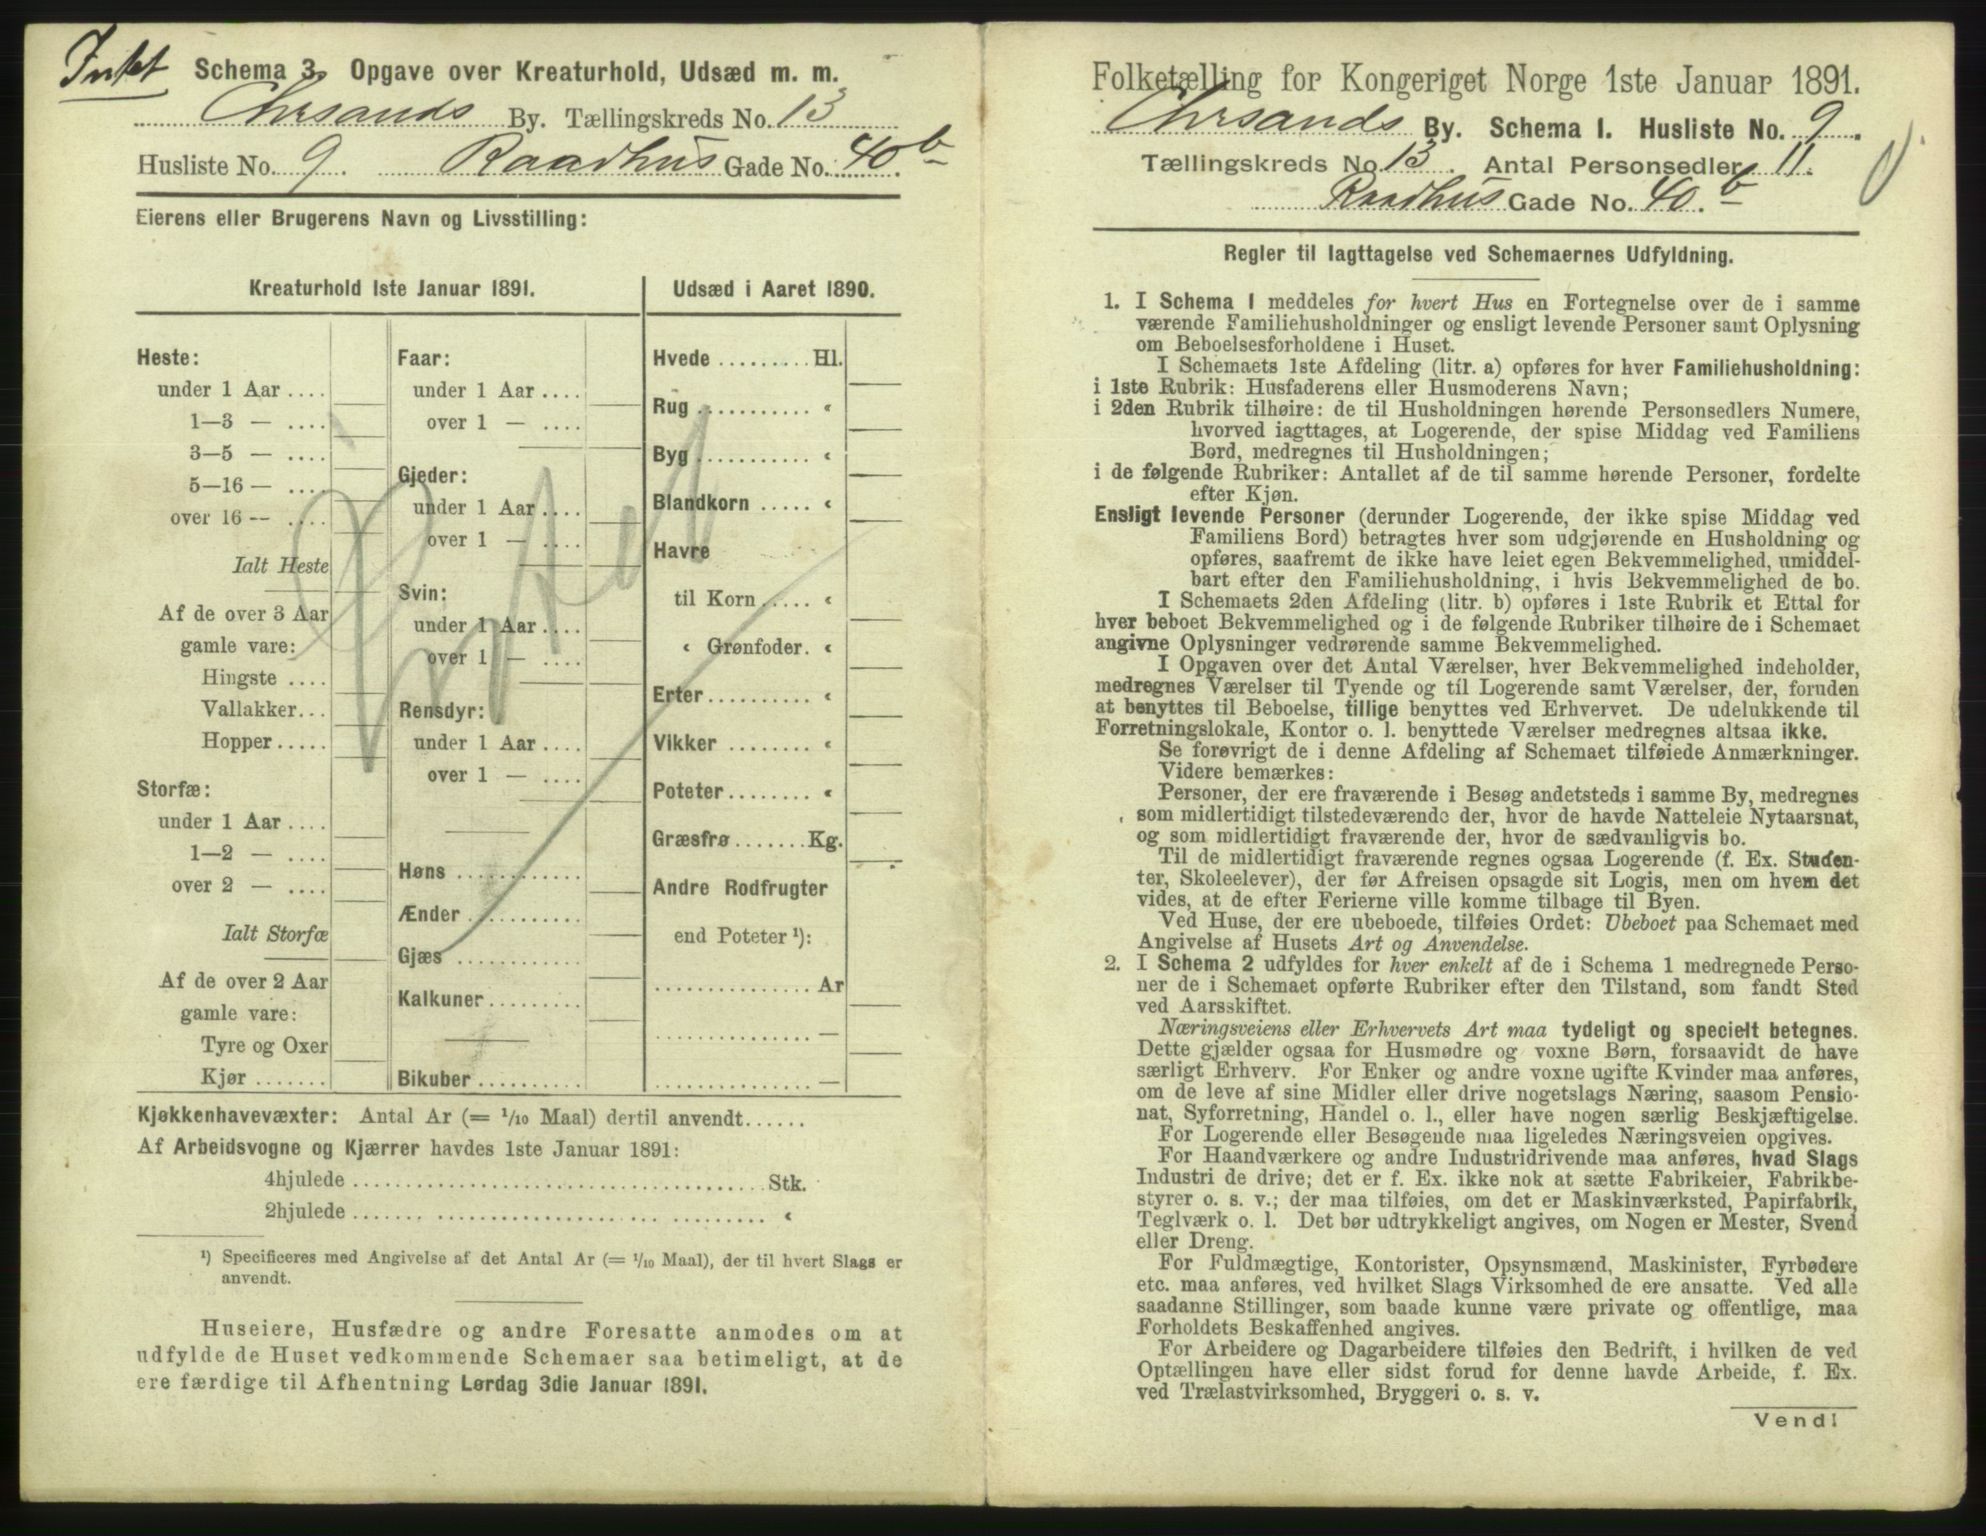 Intet Schema 3. Opgave over Kreaturhold, Udsæd m. m.
Chrsands By. Tællingskreds No. 13
Husliste No. 9. Raadhus Gade No. 40 b
Eierens eller Brugerens Navn og Livsstilling:
Kreaturhold 1ste Januar 1891.
Heste:
under 1 Aar ....
1—3 — ....
3—5 — ....
5—16 — ....
over 16 — ....
Ialt Heste
Af de over 3 Aar
gamle vare:
Hingste ....
Vallakker...
Hopper.....
Storfæ:
under 1 Aar ....
1—2 — ....
over 2 — ....
Ialt Storfæ
Af de over 2 Aar
gamle vare:
Tyre og Oxer
Kjør .......
Faar:
under 1 Aar ....
over 1 — ....
Gjeder:
under 1 Aar ....
over 1 — ....
Svin:
under 1 Aar ....
over 1 — ....
Rensdyr:
under 1 Aar ....
over 1 — ....
Høns ............
Ænder ...........
Gjæs ............
Kalkuner.........
Bikuber ..........
Intet
Udsæd i Aaret 1890.
Hvede ......... Hl.
Rug ........... «
Byg ........... «
Blandkorn ..... «
Havre
til Korn ..... «
« Grønfoder. «
Erter .......... «
Vikker ........ «
Poteter........ «
Græsfrø ....... Kg.
Andre Rodfrugter
end Poteter ¹):
............... Ar
............... —
............... —
Kjøkkenhavevæxter: Antal Ar (= 1/10 Maal) dertil anvendt......
Af Arbeidsvogne og Kjærrer havdes 1ste Januar 1891:
4hjulede ....................................... Stk.
2hjulede ....................................... «
¹) Specificeres med Angivelse af det Antal Ar (= 1/10 Maal), der til hvert Slags er
anvendt.
Huseiere, Husfædre og andre Foresatte anmodes om at
udfylde de Huset vedkommende Schemaer saa betimeligt, at de
ere færdige til Afhentning Lørdag 3die Januar 1891.
Folketælling for Kongeriget Norge 1ste Januar 1891.
Chrsands By. Schema 1. Husliste No. 9.
Tællingskreds No. 13. Antal Personsedler 11.
Raadhus Gade No. 40. b
Regler til Iagttagelse ved Schemaernes Udfyldning.
1. I Schema 1 meddeles for hvert Hus en Fortegnelse over de i samme
værende Familiehusholdninger og ensligt levende Personer samt Oplysning
om Beboelsesforholdene i Huset.
I Schemaets 1ste Afdeling (litr. a) opføres for hver Familiehusholdning:
i 1ste Rubrik: Husfaderens eller Husmoderens Navn;
i 2den Rubrik tilhøire: de til Husholdningen hørende Personsedlers Numere,
hvorved iagttages, at Logerende, der spise Middag ved Familiens
Bord, medregnes til Husholdningen;
i de følgende Rubriker: Antallet af de til samme hørende Personer, fordelte
efter Kjøn.
Ensligt levende Personer (derunder Logerende, der ikke spise Middag ved
Familiens Bord) betragtes hver som udgjørende en Husholdning og
opføres, saafremt de ikke have leiet egen Bekvemmelighed, umiddel-
bart efter den Familiehusholdning, i hvis Bekvemmelighed de bo.
I Schemaets 2den Afdeling (litr. b) opføres i 1ste Rubrik et Ettal for
hver beboet Bekvemmelighed og i de følgende Rubriker tilhøire de i Schemaet
angivne Oplysninger vedrørende samme Bekvemmelighed.
I Opgaven over det Antal Værelser, hver Bekvemmelighed indeholder,
medregnes Værelser til Tyende og til Logerende samt Værelser, der, foruden
at benyttes til Beboelse, tillige benyttes ved Erhvervet. De udelukkende til
Forretningslokale, Kontor o. l. benyttede Værelser medregnes altsaa ikke.
Se forøvrigt de i denne Afdeling af Schemaet tilføiede Anmærkninger.
Videre bemærkes:
Personer, der ere fraværende i Besøg andetsteds i samme By, medregnes
som midlertidigt tilstedeværende der, hvor de havde Natteleie Nytaarsnat,
og som midlertidigt fraværende der, hvor de sædvanligvis bo.
Til de midlertidigt fraværende regnes ogsaa Logerende (f. Ex. Studen-
ter, Skoleelever), der før Afreisen opsagde sit Logis, men om hvem det
vides, at de efter Ferierne ville komme tilbage til Byen.
Ved Huse, der ere ubeboede, tilføies Ordet: Ubeboet paa Schemaet med
Angivelse af Husets Art og Anvendelse.
2. I Schema 2 udfyldes for hver enkelt af de i Schema 1 medregnede Perso-
ner de i Schemaet opførte Rubriker efter den Tilstand, som fandt Sted
ved Aarsskiftet.
Næringsveiens eller Erhvervets Art maa tydeligt og specielt betegnes.
Dette gjælder ogsaa for Husmødre og voxne Børn, forsaavidt de have
særligt Erhverv. For Enker og andre voxne ugifte Kvinder maa anføres,
om de leve af sine Midler eller drive nogetslags Næring, saasom Pensio-
nat, Syforretning, Handel o. l., eller have nogen særlig Beskjæftigelse.
For Logerende eller Besøgende maa ligeledes Næringsveien opgives.
For Haandværkere og andre Industridrivende maa anføres, hvad Slags
Industri de drive; det er f. Ex. ikke nok at sætte Fabrikeier, Fabrikbe-
styrer o. s. v.; der maa tilføies, om det er Maskinværksted, Papirfabrik,
Teglværk o. l. Det bør udtrykkeligt angives, om Nogen er Mester, Svend
eller Dreng.
For Fuldmægtige, Kontorister, Opsynsmænd, Maskinister, Fyrbødere
etc. maa anføres, ved hvilket Slags Virksomhed de ere ansatte. Ved alle
saadanne Stillinger, som baade kunne være private og offentlige, maa
Forholdets Beskaffenhed angives.
For Arbeidere og Dagarbeidere tilføies den Bedrift, i hvilken de ved
Optællingen have eller sidst forud for denne havde Arbeide, f. Ex.
ved Trælastvirksomhed, Bryggeri o. s. v.
Vend!